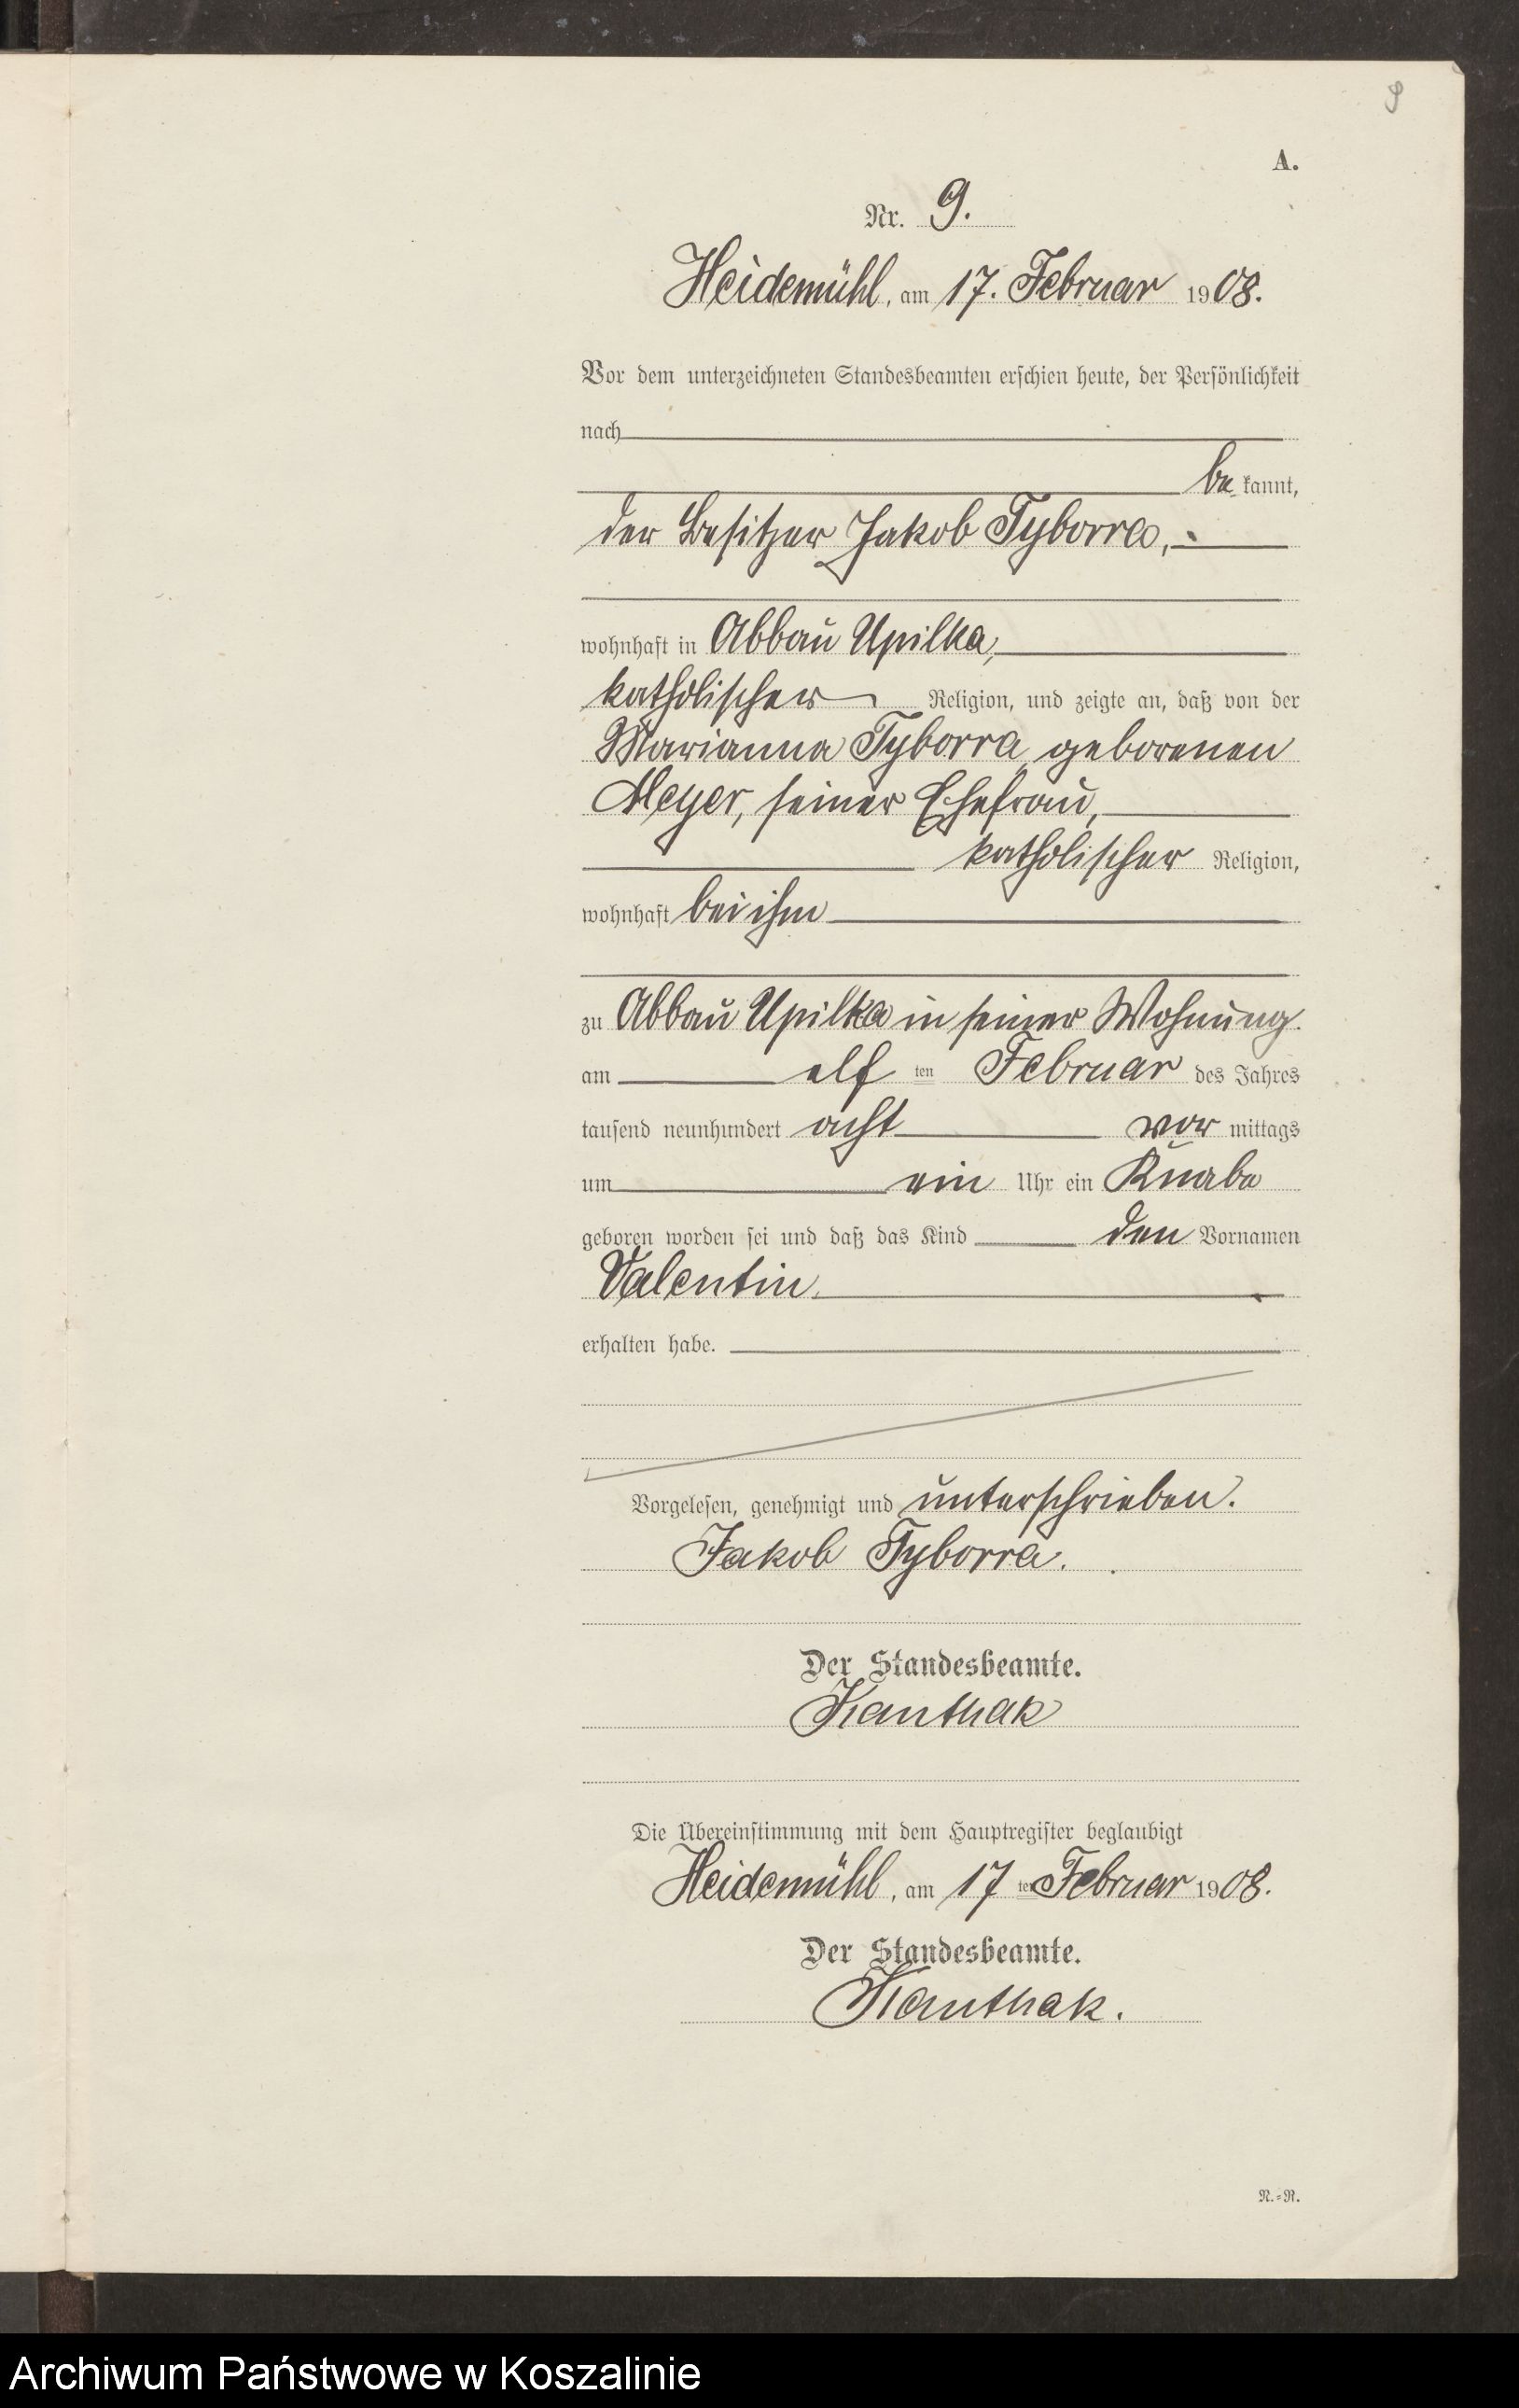 9
A.
Nr. 9.
Heidemühl, am 17. Februar 1908.
Vor dem unterzeichneten Standesbeamten erschien heute, der Persönlichkeit
nach
be kannt,
der Besitzer Jakob Tyborra,
wohnhaft in Abbau Upilka,
katholischer Religion, und zeigte an, daß von der
Marianna Tyborra geborenen
Meyer, seiner Ehefrau,
katholischer Religion,
wohnhaft bei ihm
zu Abbau Upilka in seiner Wohnung
am elf ten Februar des Jahres
tausend neunhundert acht vor mittags
um ein Uhr ein Knabe
geboren worden sei und daß das Kind den Vornamen
Valentin
erhalten habe.
Vorgelesen, genehmigt und unterschrieben.
Jakob Tyborra.
Der Standesbeamte.
Kanthak
Die Übereinstimmung mit dem Hauptregister beglaubigt
Heidemühl, am 17 ten Februar 1908.
Der Standesbeamte.
Kanthak.
N.=R.
Archiwum Państwowe w Koszalinie